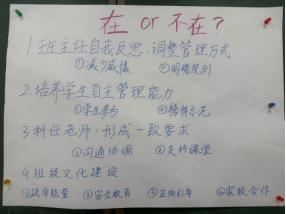 在 or 不在？
1.班主任自我反思、调整管理方式
①减少威慑 ②明确规则
2.培养学生自主管理能力
①学生参与 ②榜样示范
3.科任老师：形成一致要求
①沟通协调 ②支持课堂
4.班级文化建设
①疏导能量 ②安全教育 ③正向引导 ④家校合作